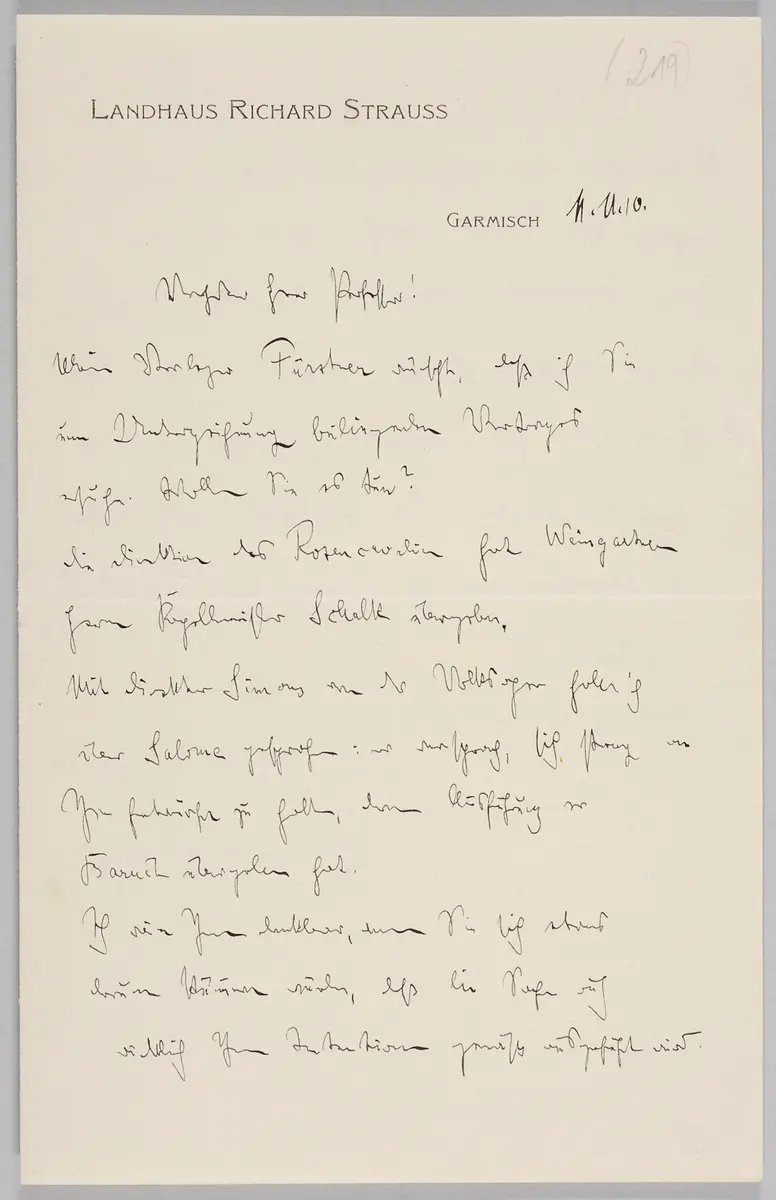 (219)
LANDHAUS RICHARD STRAUSS
GARMISCH 11.11.10.
Verehrter Herr Professor!
Mein Verleger Fürstner wünscht, daß ich Sie
um Unterzeichnung beiliegenden Vertrages
ersuche. Wollen Sie es tun?
Die Direktion des Rosencavalier hat Weingartner
Herrn Kapellmeister Schalk übergeben.
Mit Direktor Simons von der Volksoper habe ich
über Salome gesprochen: er versprach, sich streng an
Ihre Entwürfe zu halten, deren Ausführung er
Baruch übergeben hat.
Ich wäre Ihnen dankbar, wenn Sie sich etwas
darum kümmern würden, daß die Sache auch
wirklich Ihren Intentionen gemäß ausgeführt wird.